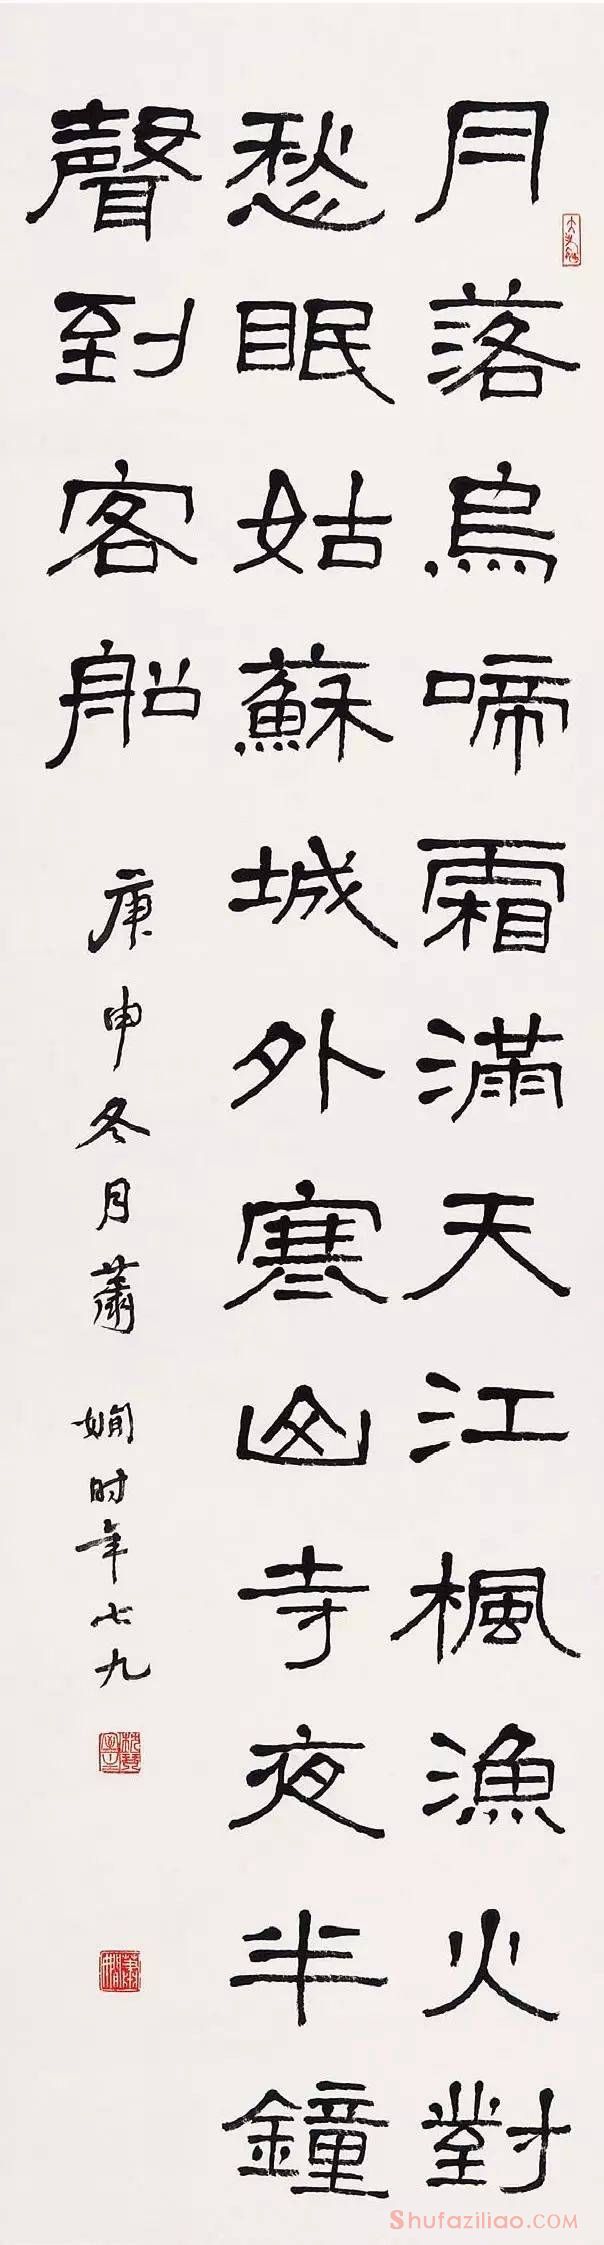 月落烏啼霜滿天江楓漁火對
愁眠姑蘇城外寒山寺夜半鐘
聲到客船
庚申冬月蕭嫻时年七九
Shufaziliao.COM